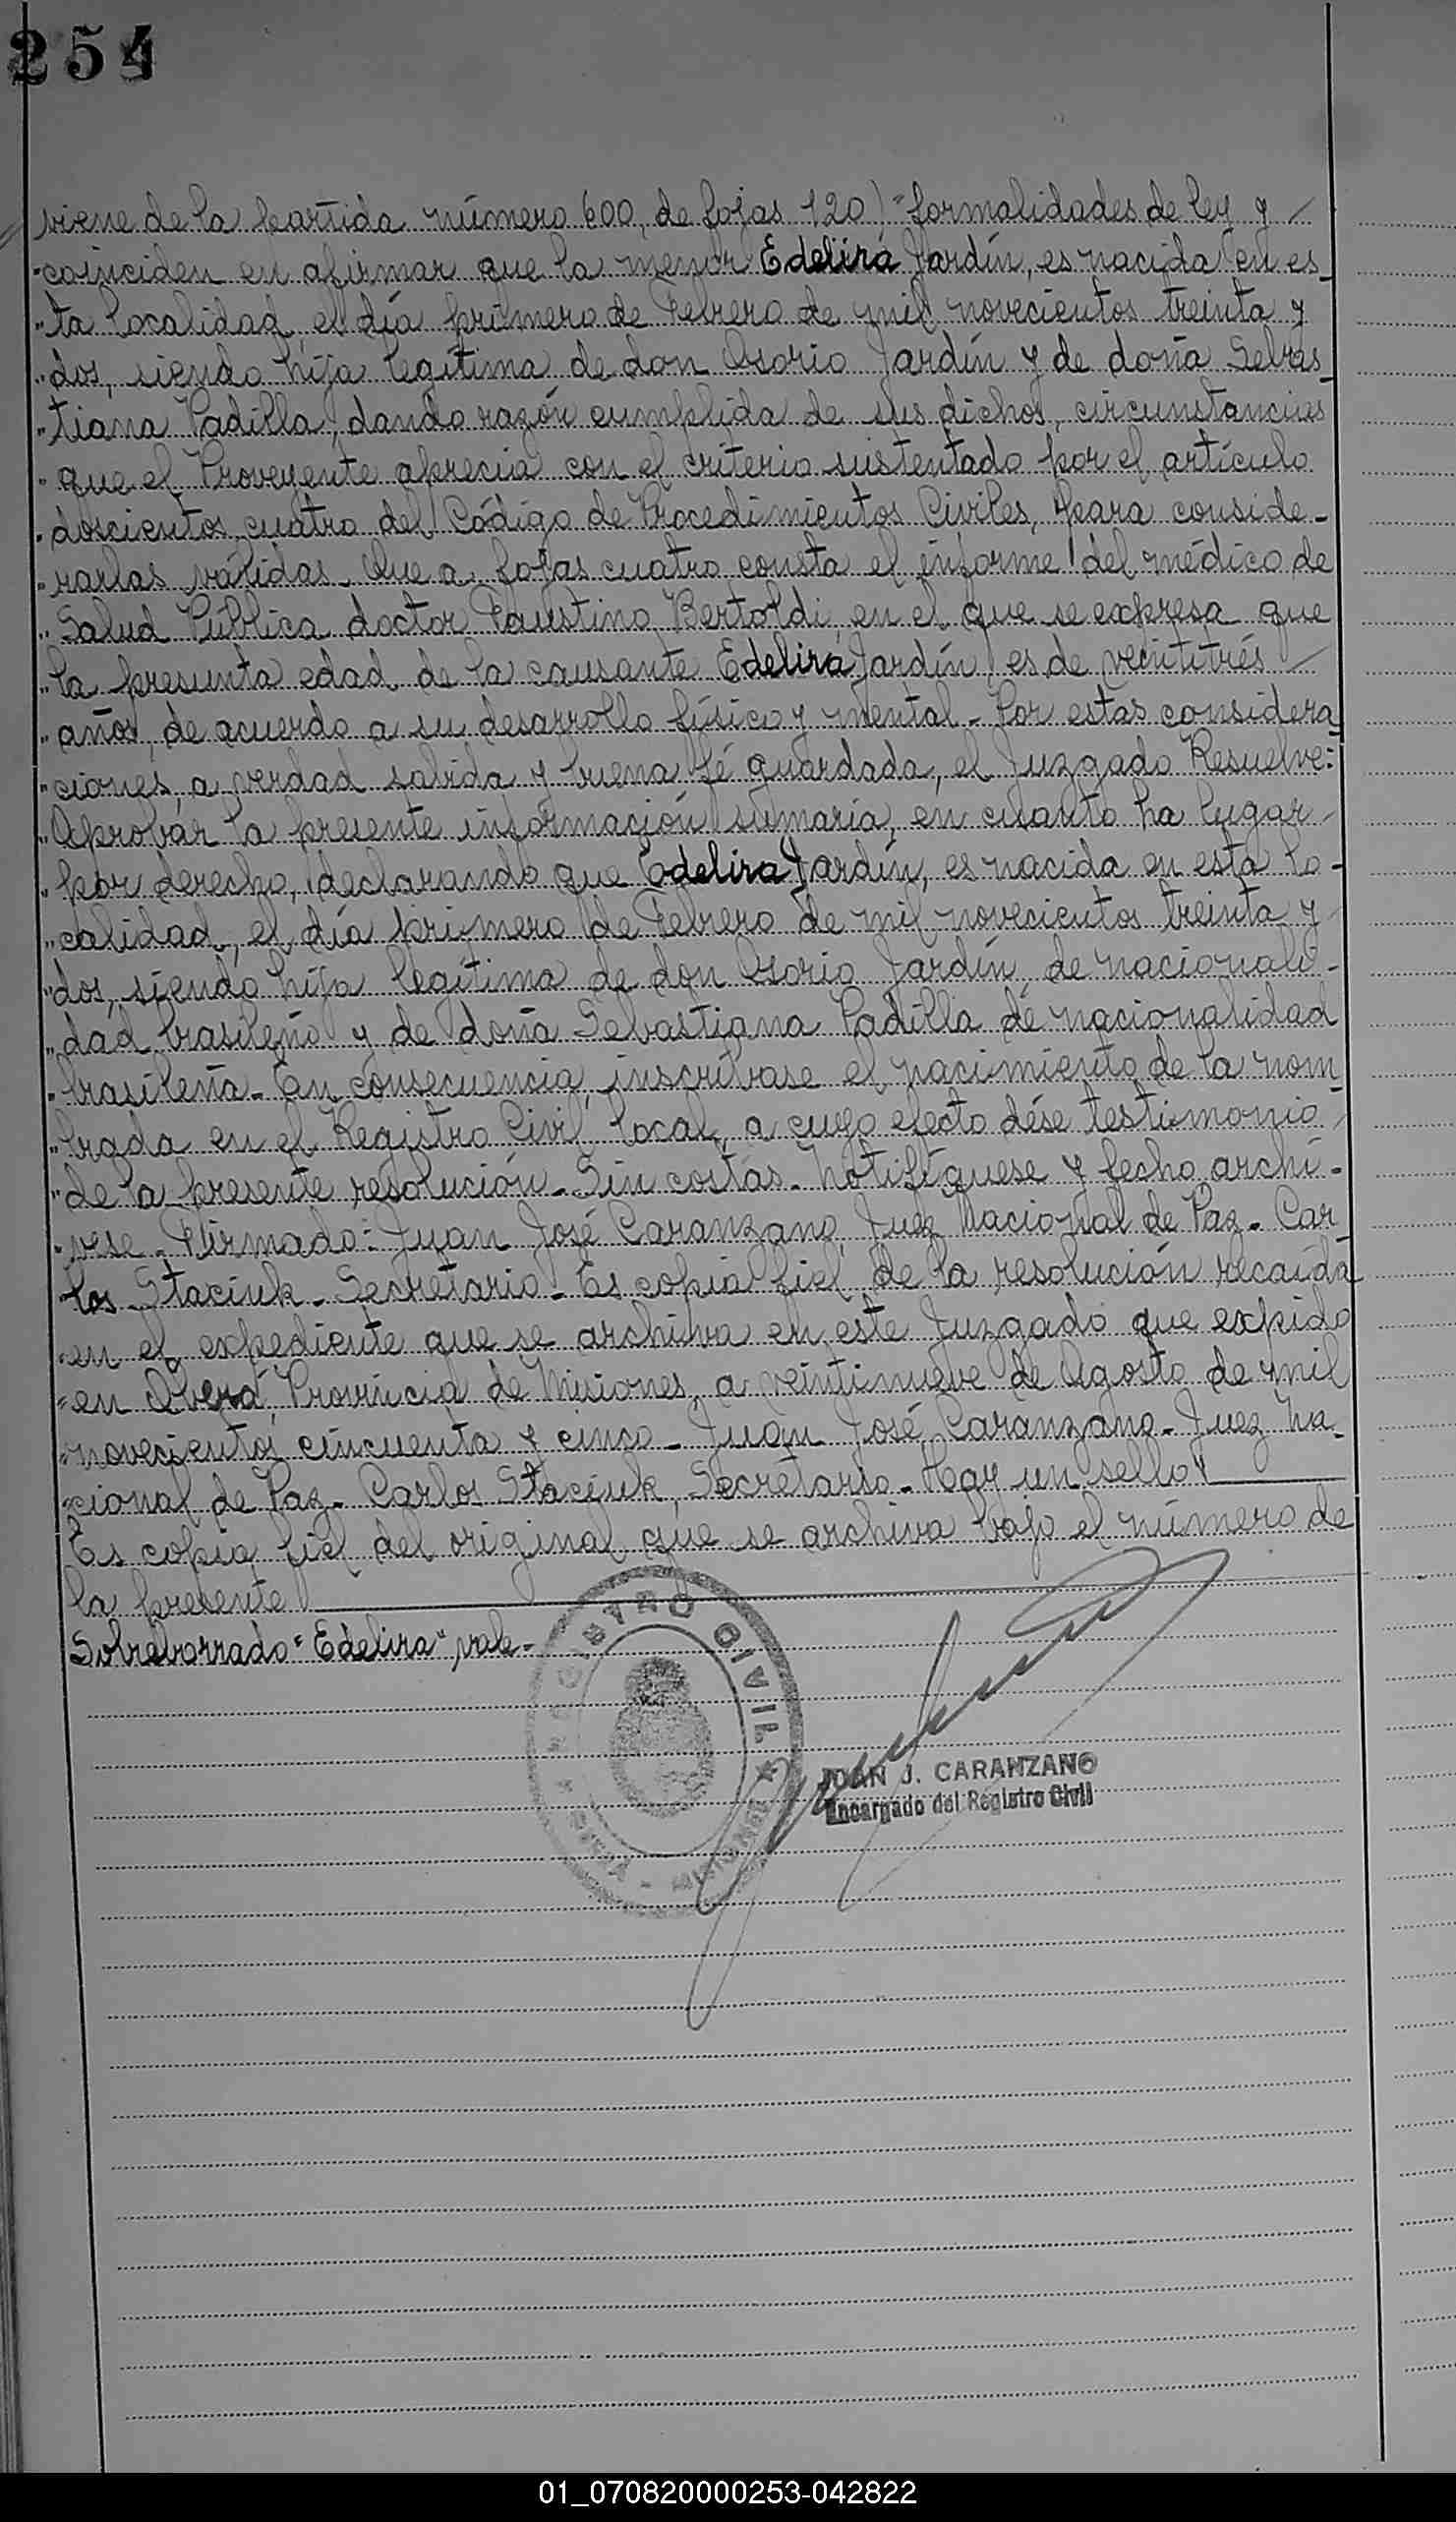 254
viene de la partida número 600, de fojas 120) "formalidades de ley y
"coinciden en afirmar que la menor Edelira Jardín, es nacida en es-
"ta localidad, el día primero de Febrero de mil novecientos treinta y
"dos, siendo hija legítima de don Osorio Jardín y de doña Sebas-
"tiana Padilla, dando razón cumplida de sus dichos, circunstancias
"que el Proveyente aprecia con el criterio sustentado por el artículo
"doscientos cuatro del Código de Procedimientos Civiles, para conside-
"rarlas válidas. Que a fojas cuatro consta el informe del médico de
"Salud Pública doctor Faustino Bertoldi, en el que se expresa que
"la presunta edad de la causante Edelira Jardín, es de veintitrés
"años, de acuerdo a su desarrollo físico y mental. Por estas considera
"ciones, a verdad sabida y buena fé guardada, el Juzgado Resuelve:
"Aprobar la presente información sumaria, en cuanto ha lugar
"por derecho, declarando que Edelira Jardín, es nacida en esta lo-
"calidad, el día primero de Febrero de mil novecientos treinta y
"dos, siendo hija legítima de don Osorio Jardín, de nacionali-
"dad brasileño y de doña Sebastiana Padilla de nacionalidad
"brasileña. En consecuencia, inscríbase el nacimiento de la nom
"brada en el Registro Civil local, a cuyo efecto dése testimonio
"de la presente resolución. Sin costas. Notifíquese y fecho, archí-
"vese. Firmado: Juan José Caranzano, Juez Nacional de Paz. Car
"los Staciuk. Secretario. Es copia fiel de la resolución recaída
"en el expediente que se archiva en este Juzgado que expido
"en Oberá, Provincia de Misiones, a veintinueve de Agosto de mil
"novecientos cincuenta y cinco. Juan José Caranzano. Juez Na-
"cional de Paz. Carlos Staciuk, Secretario. Hay un sello"
Es copia fiel del original que se archiva bajo el número de
la presente
Sobreborrado "Edelira" vale.
REGISTRO CIVIL
OBERA - MISIONES
JUAN J. CARANZANO
Encargado del Registro Civil
01_070820000253-042822